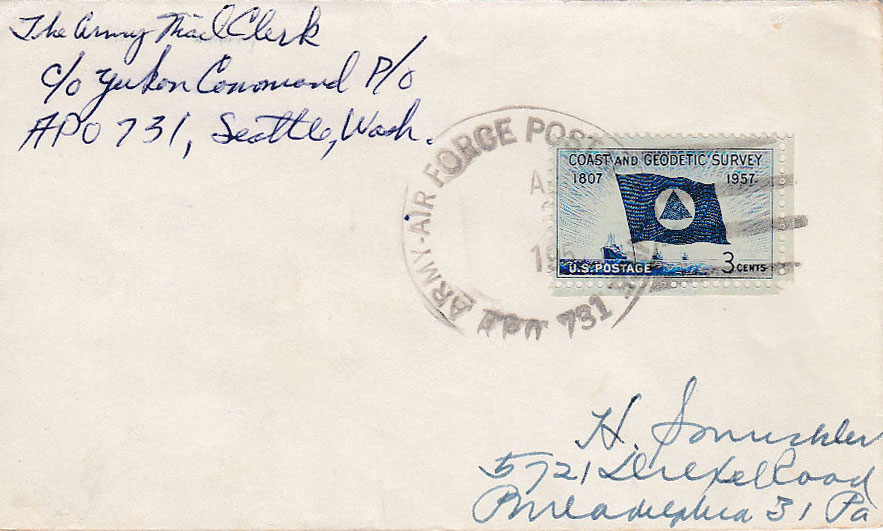 The Army Mail Clerk
c/o Yukon Command P/O
APO 731, Seattle, Wash.
ARMY-AIR FORCE POST
A
195
APO 731
COAST AND GEODETIC SURVEY
1807 1957
U.S. POSTAGE 3 CENTS
H.
5721 Drexel Road
Philadelphia 31 Pa